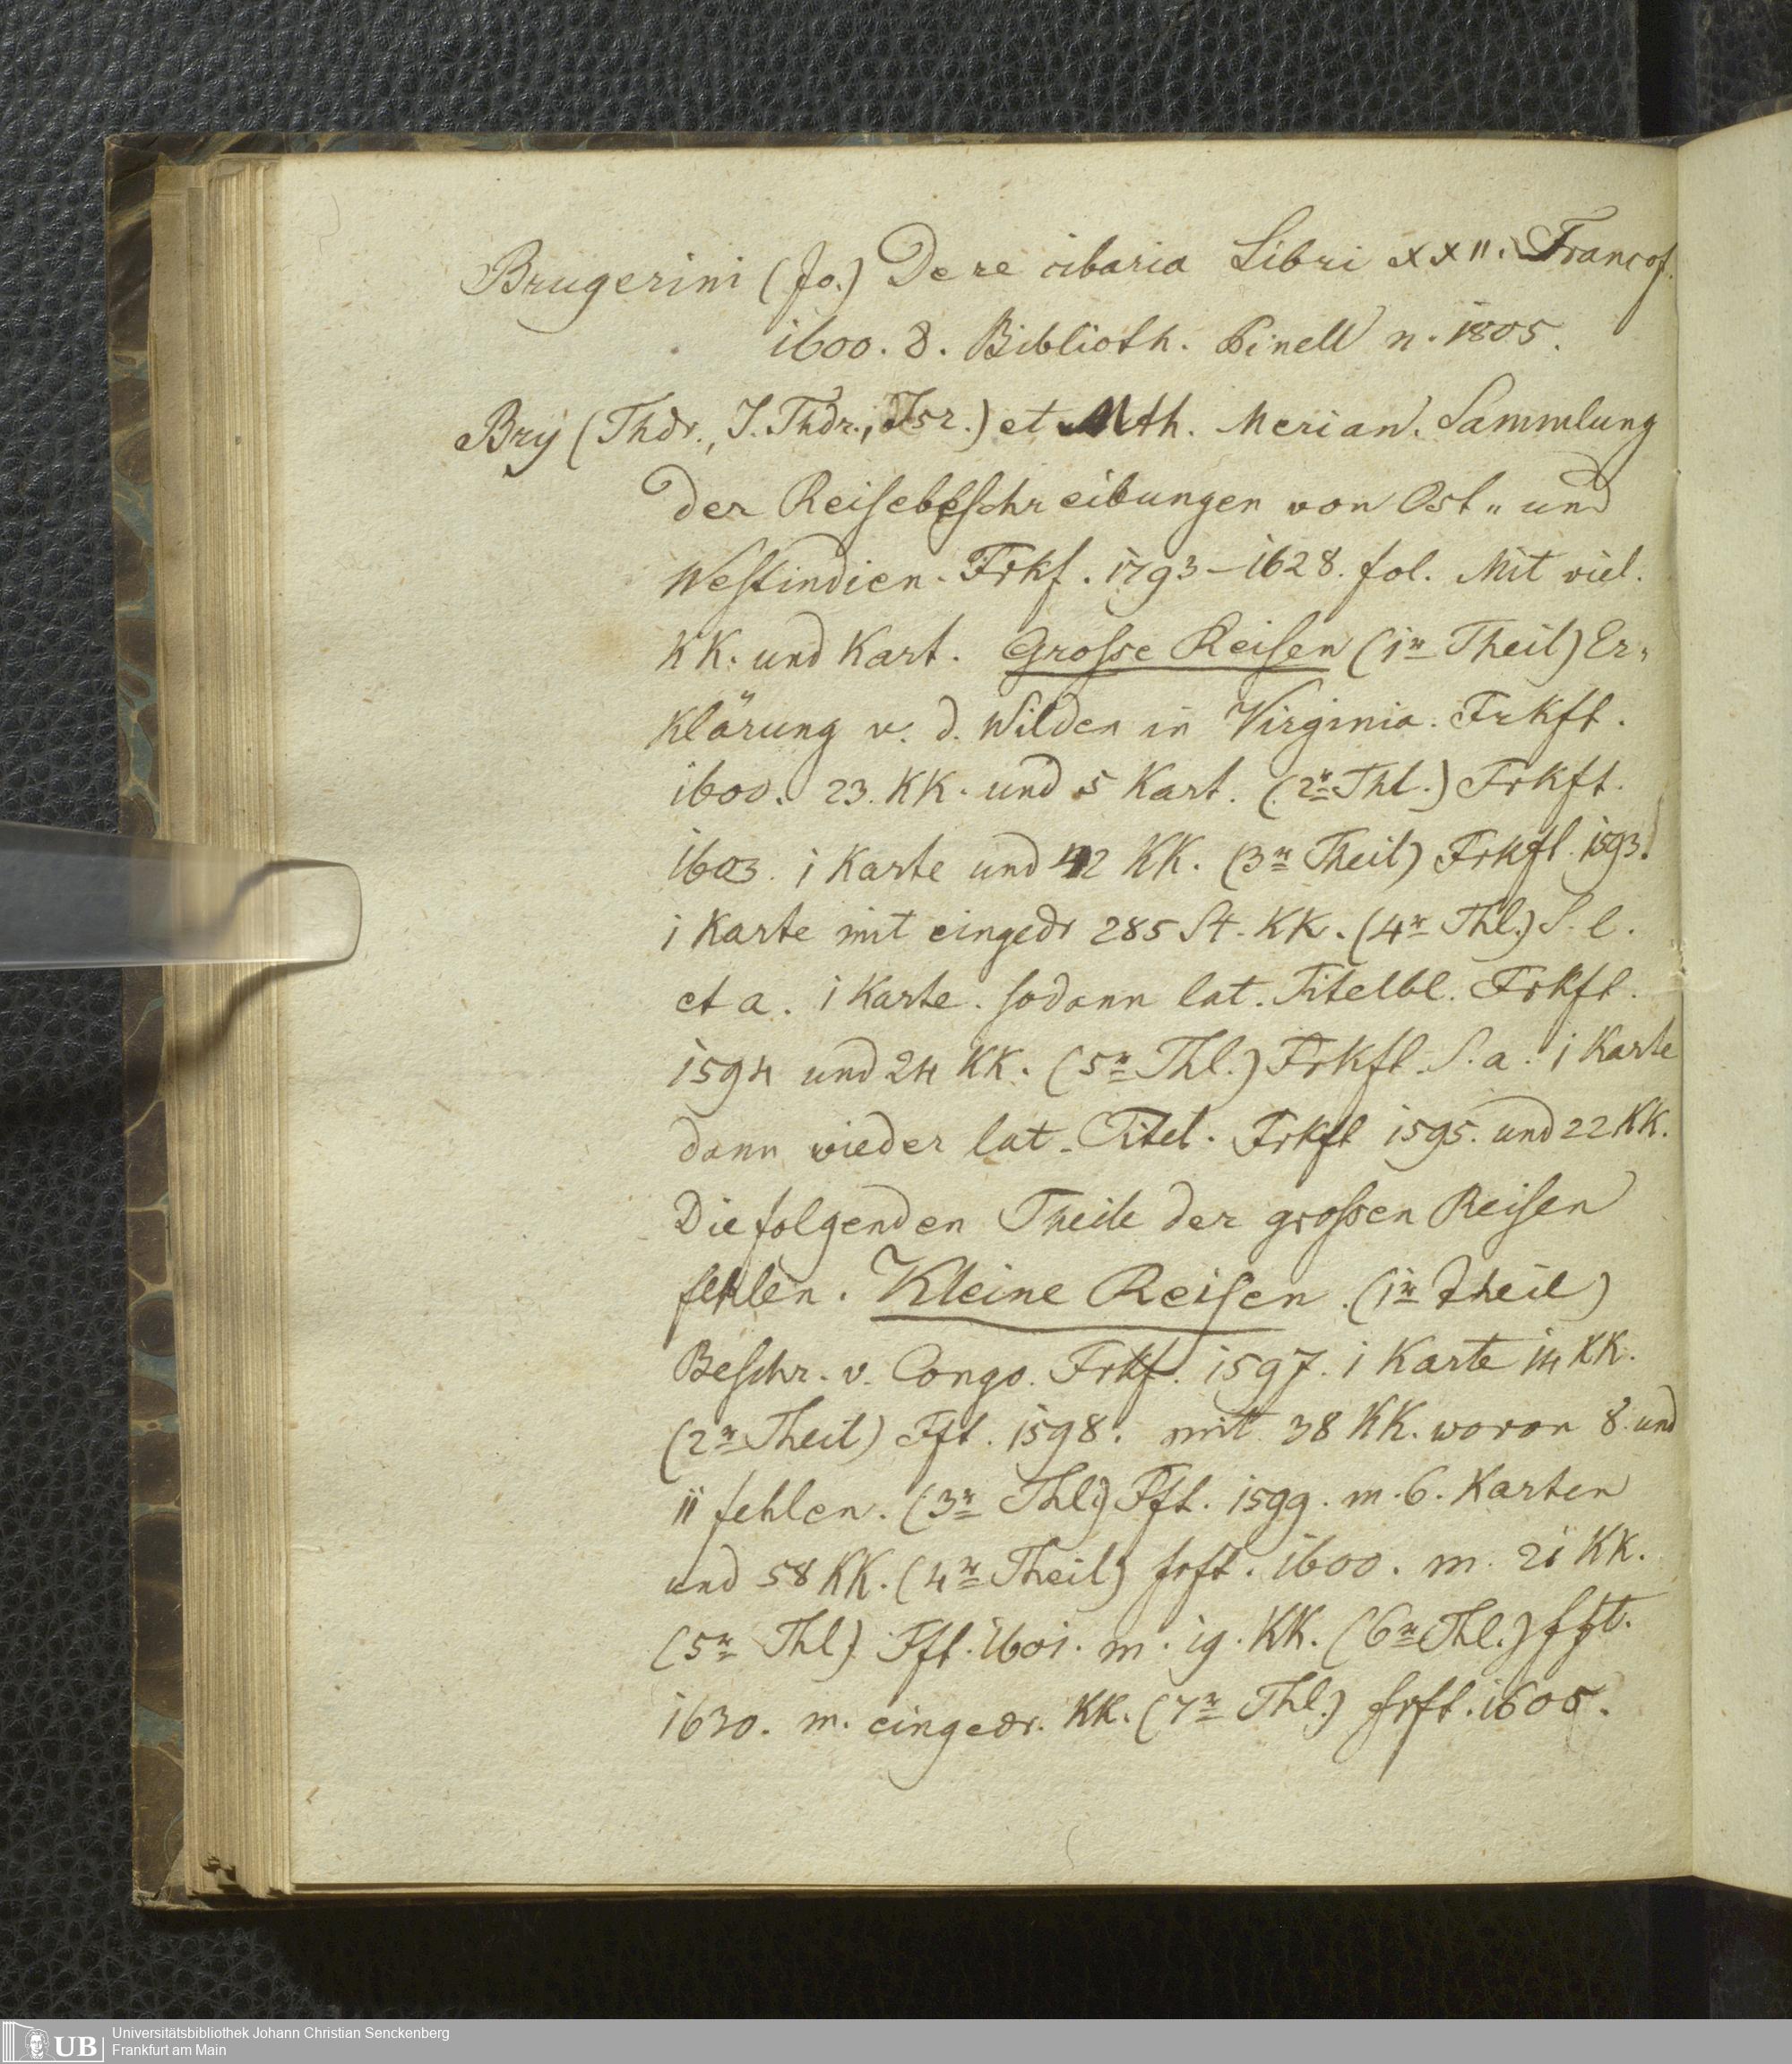 Brugerini (Jo.) De re cibaria Libri XXII. Francof.
1600. 8. Biblioth. Pinell n. 1805.
Bry (Thdr., J. Thdr., Isr.) et Mth. Merian. Sammlung
der Reisebeschreibungen von Ost- und
Westindien. Frkf. 1793–1628. fol. Mit viel.
KK. und Kart. Grosse Reisen (1r Theil) Er-
klärung v. d. Wilden in Virginia. Frkft.
1600. 23. KK. und 5 Kart. (2r Thl.) Frkft.
1603. 1 Karte und 42 KK. (3r Theil) Frkft. 1593.
1 Karte mit eingedr 285 St. KK. (4r Thl.) S. l.
et a. 1 Karte. sodann lat. Titelbl. Frkft.
1594 und 24 KK. (5r Thl.) Frkft. S. a. 1 Karte
dann wieder lat. Titel. Frkft 1595. und 22 KK.
Die folgenden Theile der grossen Reisen
fehlen. Kleine Reisen. (1r Theil)
Beschr. v. Congo. Frkf. 1597. 1 Karte 14 KK.
(2r Theil) Fft. 1598. mit 38 KK. woron 8. und
11 fehlen. (3r Thl.) Fft. 1599. m. 6. Karten
und 58 KK. (4r Theil) frft. 1600. m. 21 KK.
(5r Thl.) Fft. 1601. m. 19. KK. (6r Thl.) fft.
1630. m. eingedr. KK. (7r Thl.) frft. 1605.
UB Universitätsbibliothek Johann Christian Senckenberg
Frankfurt am Main